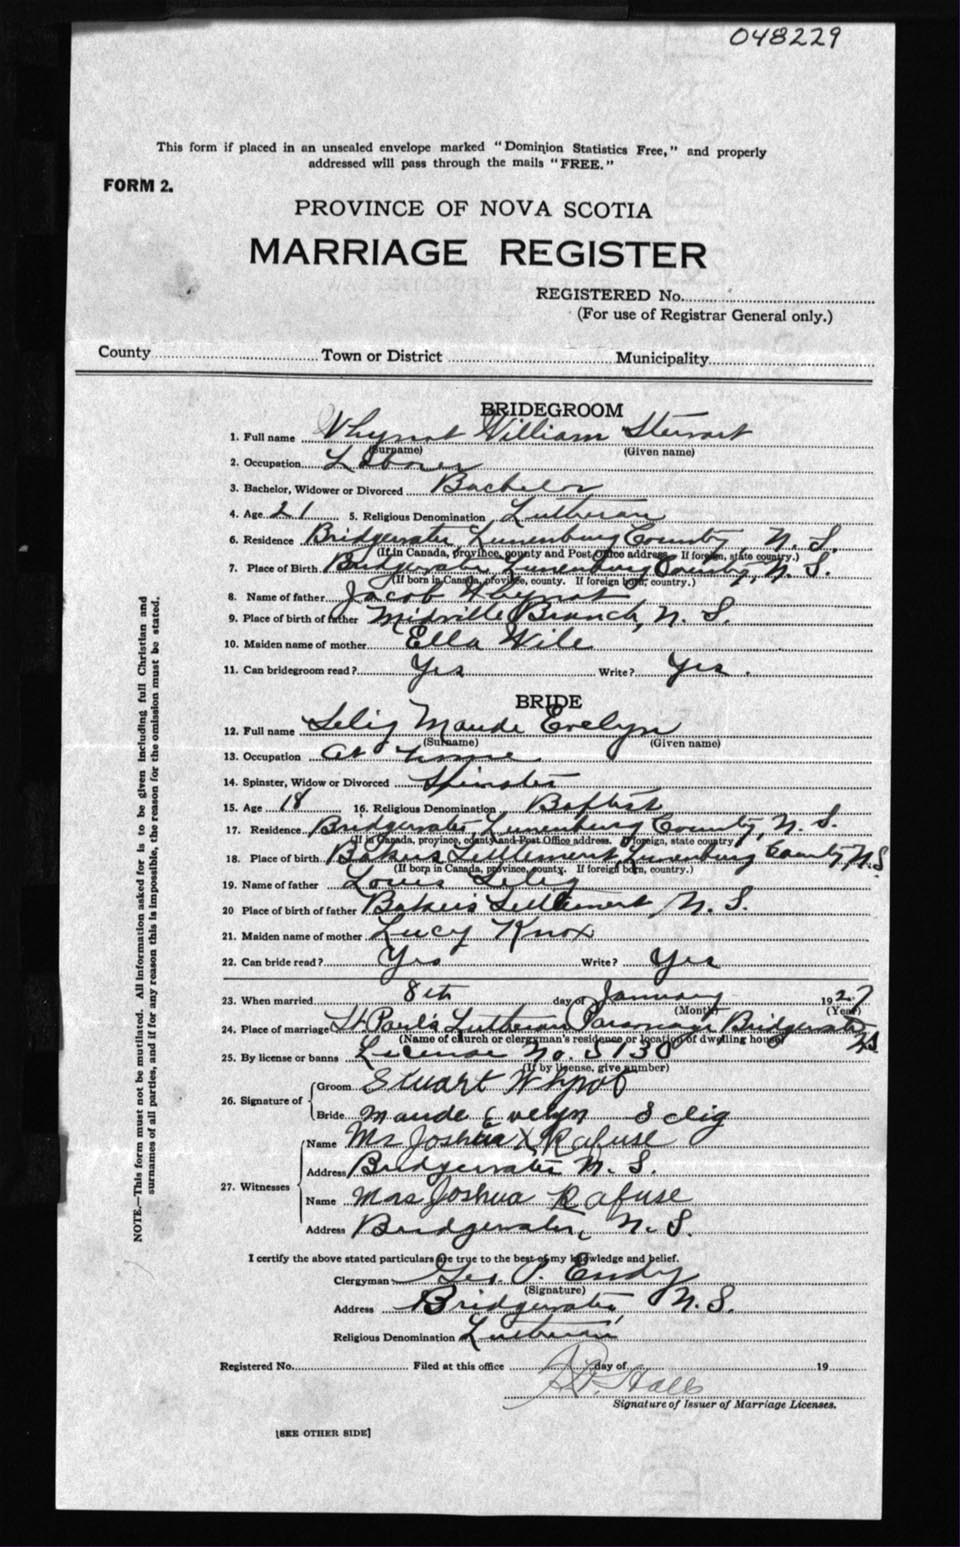 048229
This form if placed in an unsealed envelope marked "Dominion Statistics Free," and properly
addressed will pass through the mails "FREE."
FORM 2.
PROVINCE OF NOVA SCOTIA
MARRIAGE REGISTER
REGISTERED No.
(For use of Registrar General only.)
County Town or District Municipality
BRIDEGROOM
1. Full name Whynot William Stewart
(Surname) (Given name)
2. Occupation Laborer
3. Bachelor, Widower or Divorced Bachelor
4. Age 21 5. Religious Denomination Lutheran
6. Residence Bridgewater, Lunenburg County, N. S.
(If in Canada, province, county and Post Office address. If foreign, state country.)
7. Place of Birth Bridgewater, Lunenburg County, N. S.
(If born in Canada, province, county. If foreign born, country.)
8. Name of father Jacob Whynot
9. Place of birth of father Midville Branch, N. S.
10. Maiden name of mother Ella Wile
11. Can bridegroom read? Yes Write? Yes.
BRIDE
12. Full name Selig Maude Evelyn
(Surname) (Given name)
13. Occupation At home
14. Spinster, Widow or Divorced Spinster
15. Age 18 16. Religious Denomination Baptist
17. Residence Bridgewater, Lunenburg County, N. S.
(If in Canada, province, county and Post Office address. If foreign, state country)
18. Place of birth Bakers Settlement, Lunenburg County, N. S.
(If born in Canada, province, county. If foreign born, country.)
19. Name of father Louis Selig
20 Place of birth of father Bakers Settlement, N. S.
21. Maiden name of mother Lucy Knox
22. Can bride read? Yes Write? Yes
23. When married 8th day of January 1927
(Month) (Year)
24. Place of marriage St. Paul's Lutheran Parsonage Bridgewater N.S.
(Name of church or clergyman's residence or location of dwelling house)
25. By license or banns License No. 5130
(If by license, give number)
26. Signature of Groom Stuart Whynot
Bride Maude Evelyn Selig
27. Witnesses Name Mr Joshua X Rafuse
Address Bridgewater N. S.
Name Mrs Joshua Rafuse
Address Bridgewater, N. S.
I certify the above stated particulars are true to the best of my knowledge and belief.
Clergyman Geo. P. Endy
(Signature)
Address Bridgewater N. S.
Religious Denomination Lutheran
Registered No. Filed at this office day of 19
Signature of Issuer of Marriage Licenses.
[SEE OTHER SIDE]
NOTE.—This form must not be mutilated. All information asked for is to be given including full Christian and
surnames of all parties, and if for any reason this is impossible, the reason for the omission must be stated.